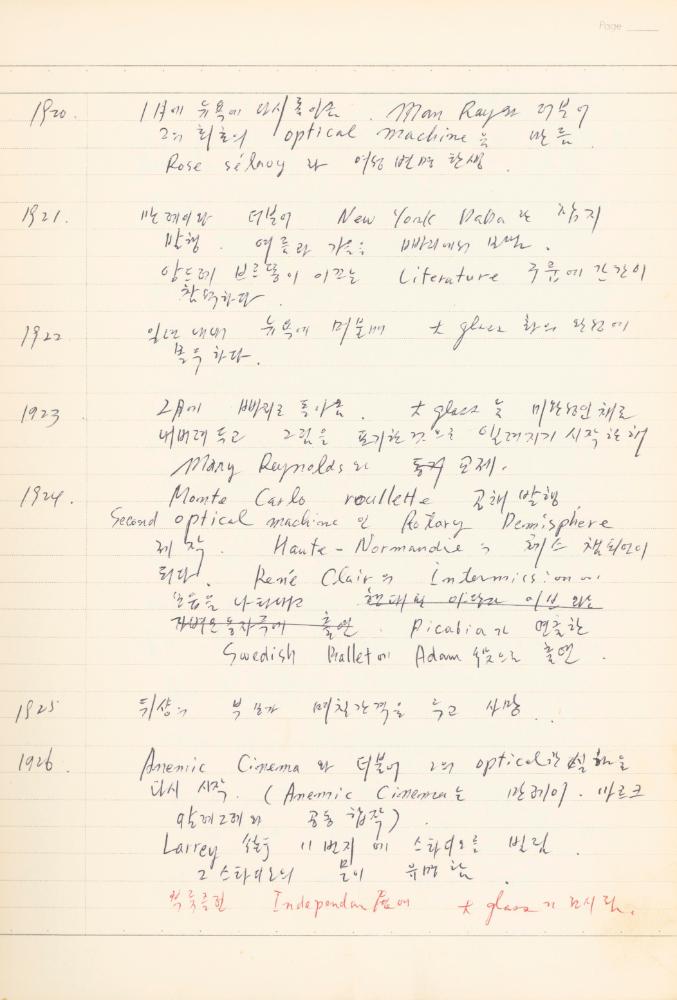 Page
1920. 1月에 뉴욕에 다시 돌아온. Man Ray와 더불어
그의 최초의 optical machine을 만듬
Rose sélavy 라 여성 변명 탄생.
1921. 만레이와 더불어 New York Dada 란 잡지
발행. 여름과 가을은 빠리에서 보냄.
앙드레 브르통이 이끄는 Literature 구룹에 간간이
참석하다.
1922 일년 내내 뉴욕에 머물며 大 glass 화의 완성에
몰두 하다.
1923 2月에 빠리로 돌아옴. 大 glass 를 미완성인 채로
내버려 두고 그림을 포기한 것으로 알려지기 시작한 해
Mary Reynolds와 교제.
1924. Monte Carlo roullette 공채 발행
Second optical machine 인 Rotary Demisphere
제작. Haute-Normandie의 체스 챔피언이
되다. René Clair의 Intermission에
모습을 나타내고
출연. Picabia가 연출한
Swedish Ballet에 Adam 으로 출연.
1925 뒤샹의 부모가 며칠간격을 두고 사망..
1926. Anemic Cinema 와 더불어 그의 optical한 실험을
다시 시작. (Anemic Cinema는 만레이. 마르크
알레그레와 공동 합작)
Larrey 11번지에 스타디오를 빌림.
그 스타디오의 문이 유명함.
Independan 展에 大 glass가 전시됨.